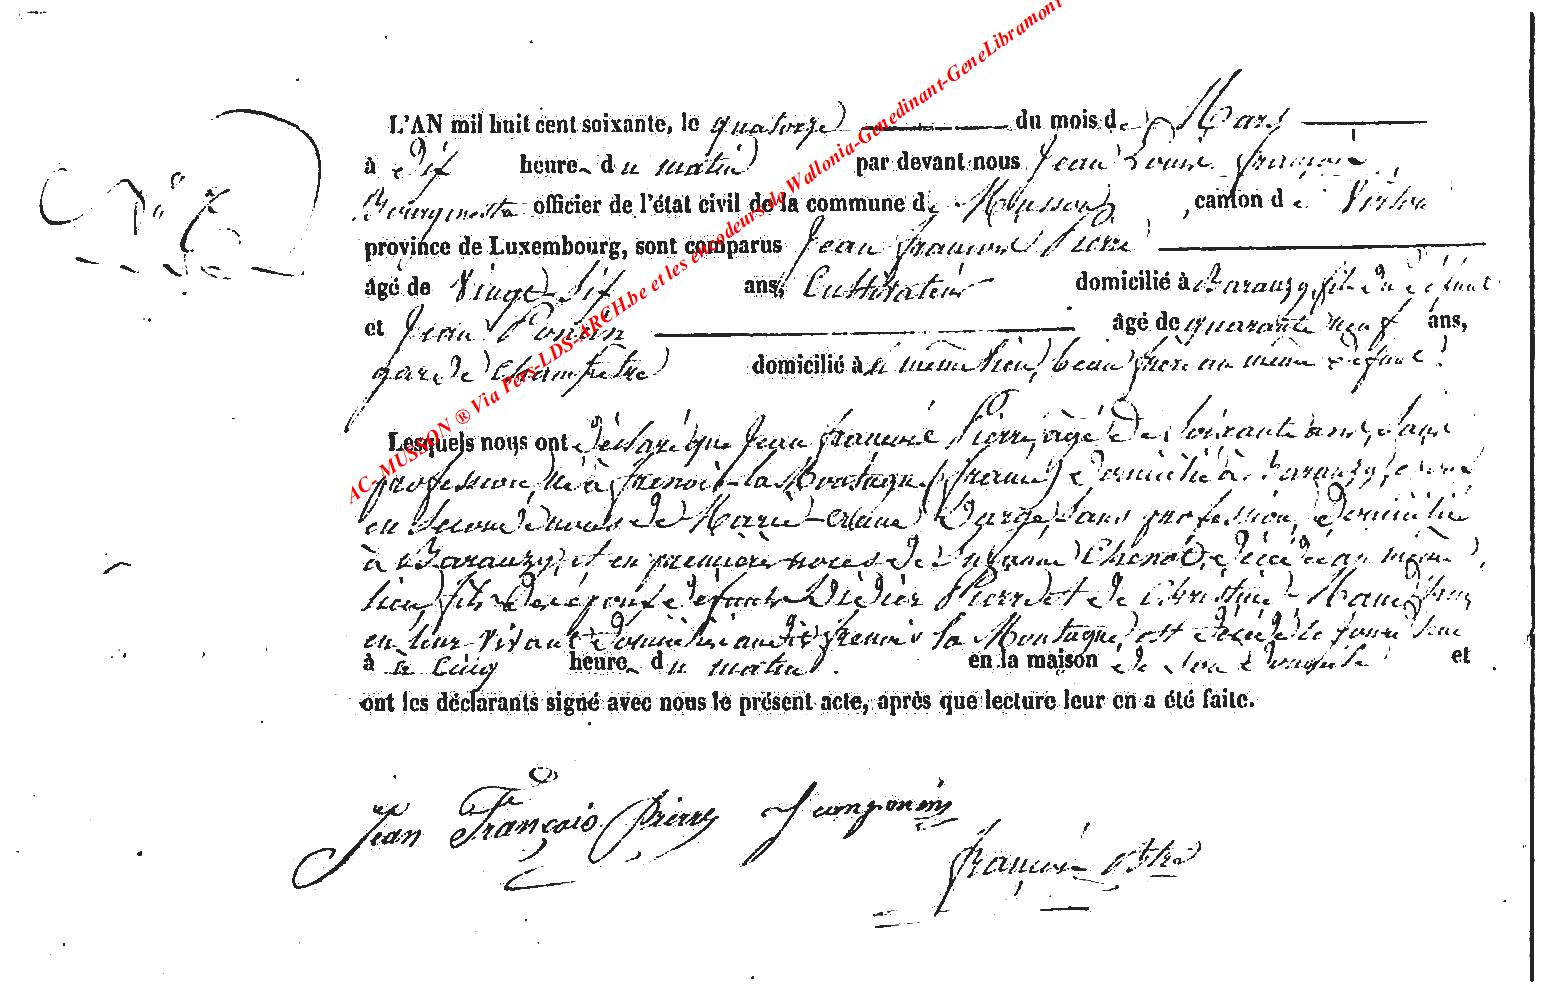 N° 7
L'AN mil huit cent soixante, le quatorze du mois de Mars
à dix heures du matin par devant nous Jean Louis François
Bourgmestre officier de l'état civil de la commune de Musson, canton de Virton
province de Luxembourg, sont comparus Jean François Pierre
âgé de Vingt-six ans, Cultivateur domicilié à Baranzy, fils du défunt
et Jean Ponsin âgé de quarante neuf ans,
garde Champêtre domicilié à même lieu, beau frère au même défunt.
Lesquels nous ont déclaré que Jean François Pierre, âgé de soixante ans, sans
profession, né à frenois-la Montagne (france) domicilié à Baranzy, époux
en seconde noces de Marie-Anne sans profession, domiciliée
à Baranzy, et en premières noces de Chenot, décédée au même
lieu, fils des époux défunts Didier Pierre et de Christine
en leur vivant domiciliés audit frenois la Montagne, est décédé le
à cinq heures du matin. en la maison de son domicile et
ont les déclarants signé avec nous le présent acte, après que lecture leur en a été faite.
Jean François Pierre J ponsin
françois
AC-MUSSON ® Via Pers-LDS-ARCH.be et les encodeurs de Wallonia-Genedinant-GeneLibramont